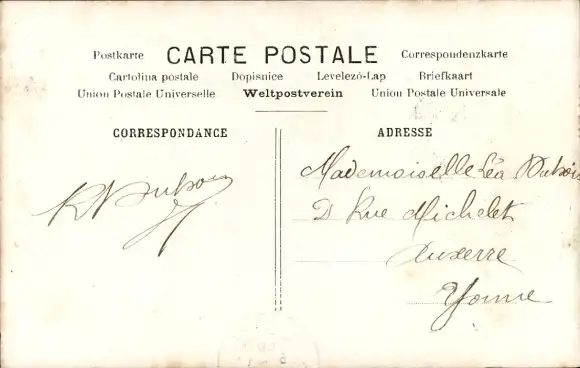 Postkarte CARTE POSTALE Correspondenzkarte
Cartolina postale Dopisnice Levelezó-Lap Briefkaart
Union Postale Universelle Weltpostverein Union Postale Universale
CORRESPONDANCE ADRESSE
Mademoiselle Léa Dubois
Rue Michelet
Auxerre
Yonne
Dubois